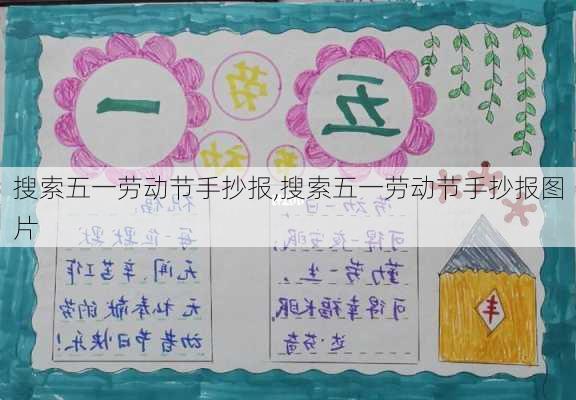 一
劳
五
动
搜索五一劳动节手抄报,搜索五一劳动节手抄报图
片
祝福:
每一位默默
无闻、辛苦工作
无私奉献的劳
动者节日快乐!
劳动一日,
可得一夜安眠,
勤劳一生,
可得幸福长眠
达·芬奇
丰